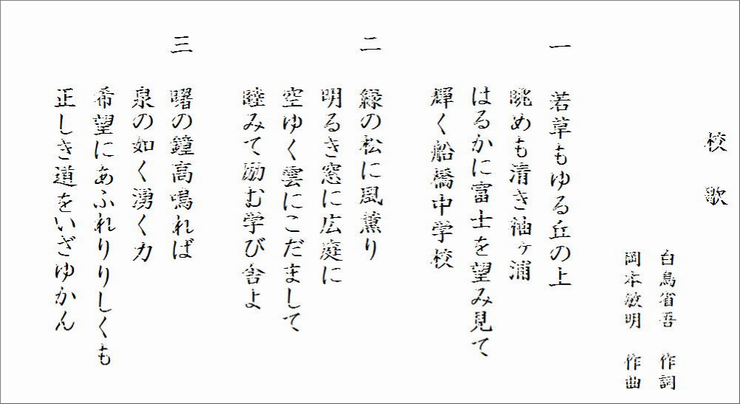 校歌
白鳥省吾 作詞
岡本敏明 作曲
一 若草もゆる丘の上
眺めも清き袖ヶ浦
はるかに富士を望み見て
輝く船橋中学校
二 緑の松に風薫り
明るき窓に広庭に
空ゆく雲にこだまして
睦みて励む学び舎よ
三 曙の鐘高鳴れば
泉の如く湧く力
希望にあふれりりしくも
正しき道をいざゆかん